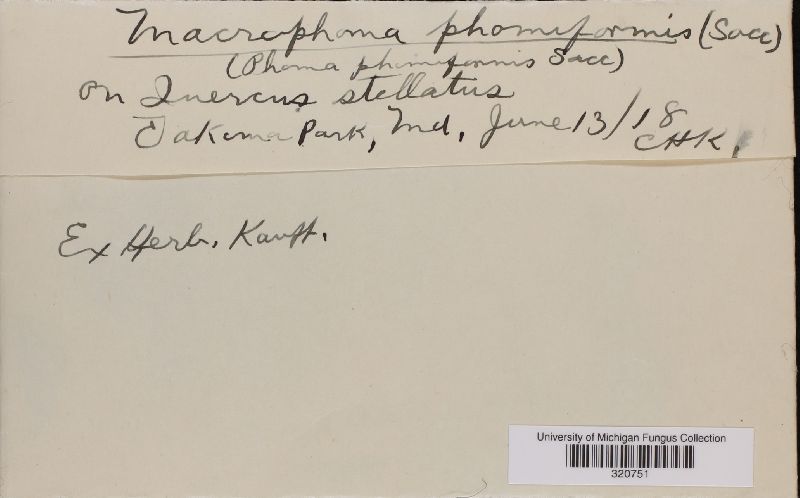 Macrophoma phomiformis (Sacc)
(Phoma phomiformis Sacc)
on Quercus stellatus
Takoma Park, Md, June 13/18
CHK.
Ex Herb. Kauff.
University of Michigan Fungus Collection
320751